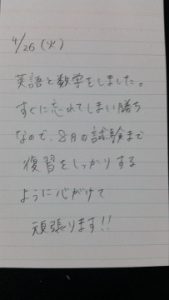 4/26(火)
英語と数学をしました。
すぐに忘れてしまい勝ち
なので、8月の試験まで
復習をしっかりする
ように心がけて
頑張ります!!